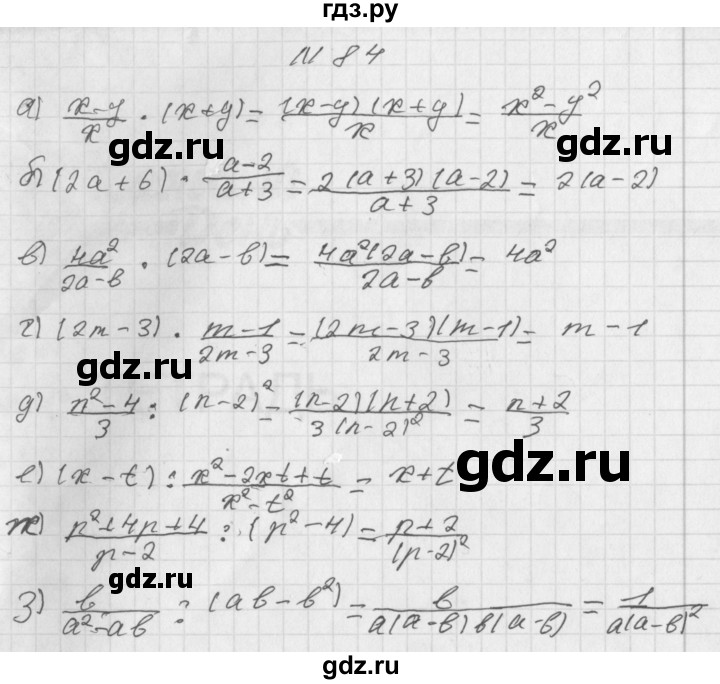 гдз.ру
N 84
а) (x-y)/x · (x+y) = ((x-y)(x+y))/x = (x²-y²)/x
gdz.ru gdz.ru
б) (2a+6) · (a-2)/(a+3) = (2(a+3)(a-2))/(a+3) = 2(a-2)
в) 4a²/(2a-b) · (2a-b) = (4a²(2a-b))/(2a-b) = 4a²
г) (2m-3) · (m-1)/(2m-3) = ((2m-3)(m-1))/(2m-3) = m-1
gdz.ru gdz.ru
д) (n²-4)/3 : (n-2)² = ((n-2)(n+2))/(3(n-2)²) = (n+2)/3
е) (x-t) : (x²-2xt+t)/(x²-t²) = x+t
gdz.ru
ж) (p²+4p+4)/(p-2) : (p²-4) = (p+2)/(p-2)²
gdz.ru
з) b/(a²-ab) : (ab-b²) = b/(a(a-b)b(a-b)) = 1/(a(a-b)²
gdz.ru